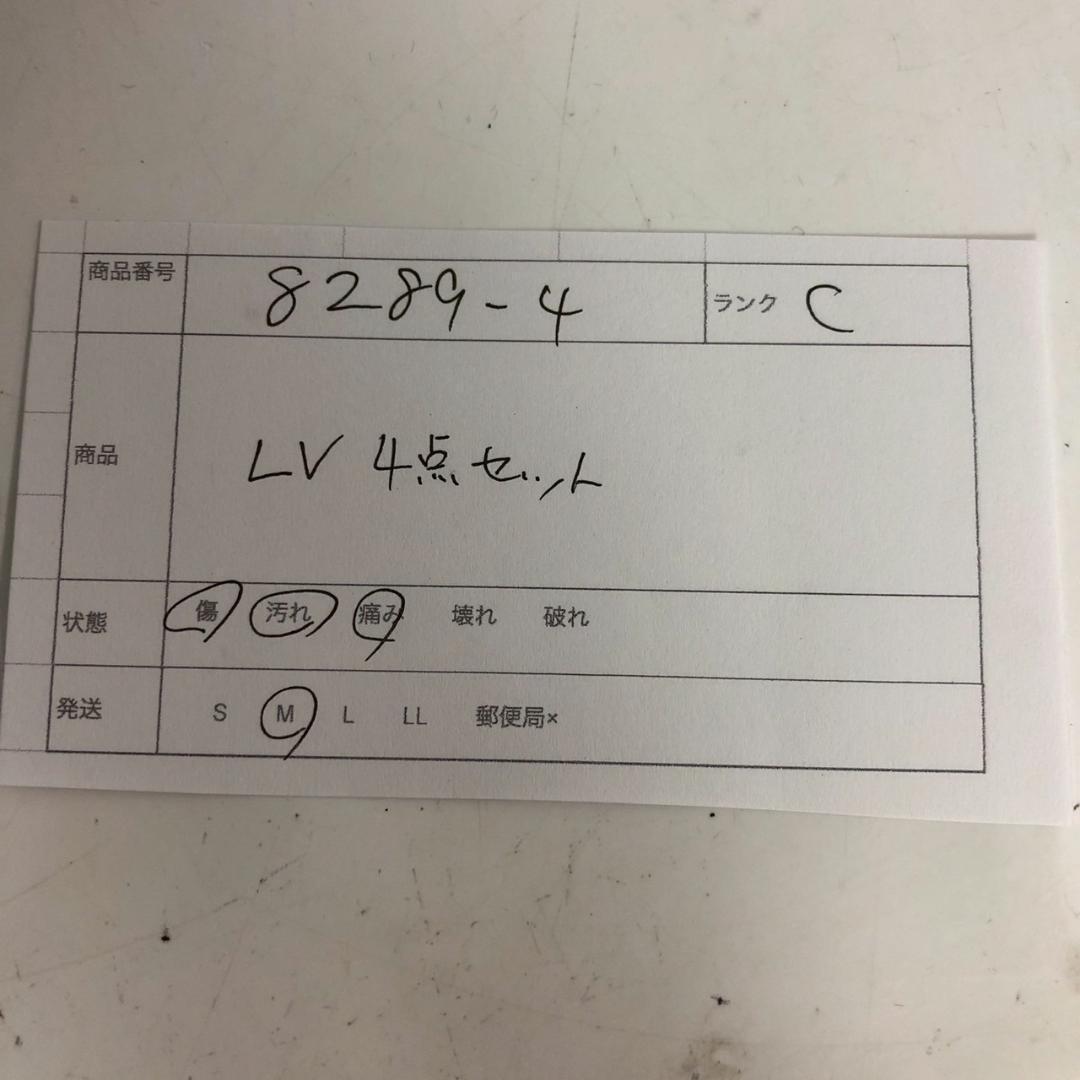 商品番号 8289-4 ランク C
商品 LV 4点セット
状態 傷 汚れ 痛み 壊れ 破れ
発送 S M L LL 郵便局×